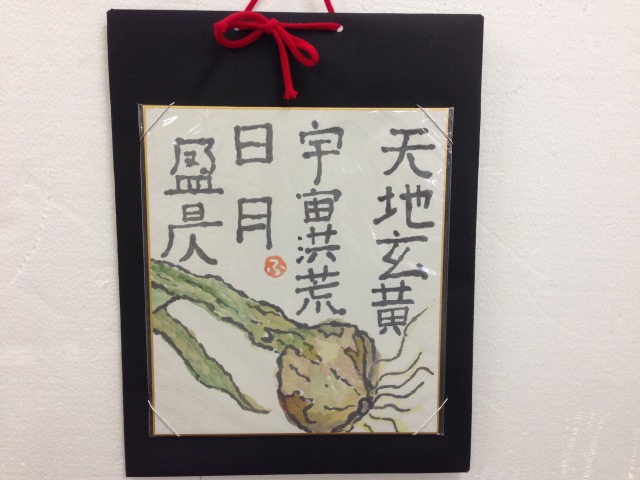 天地玄黄
宇宙洪荒
日月
盈昃
ふ